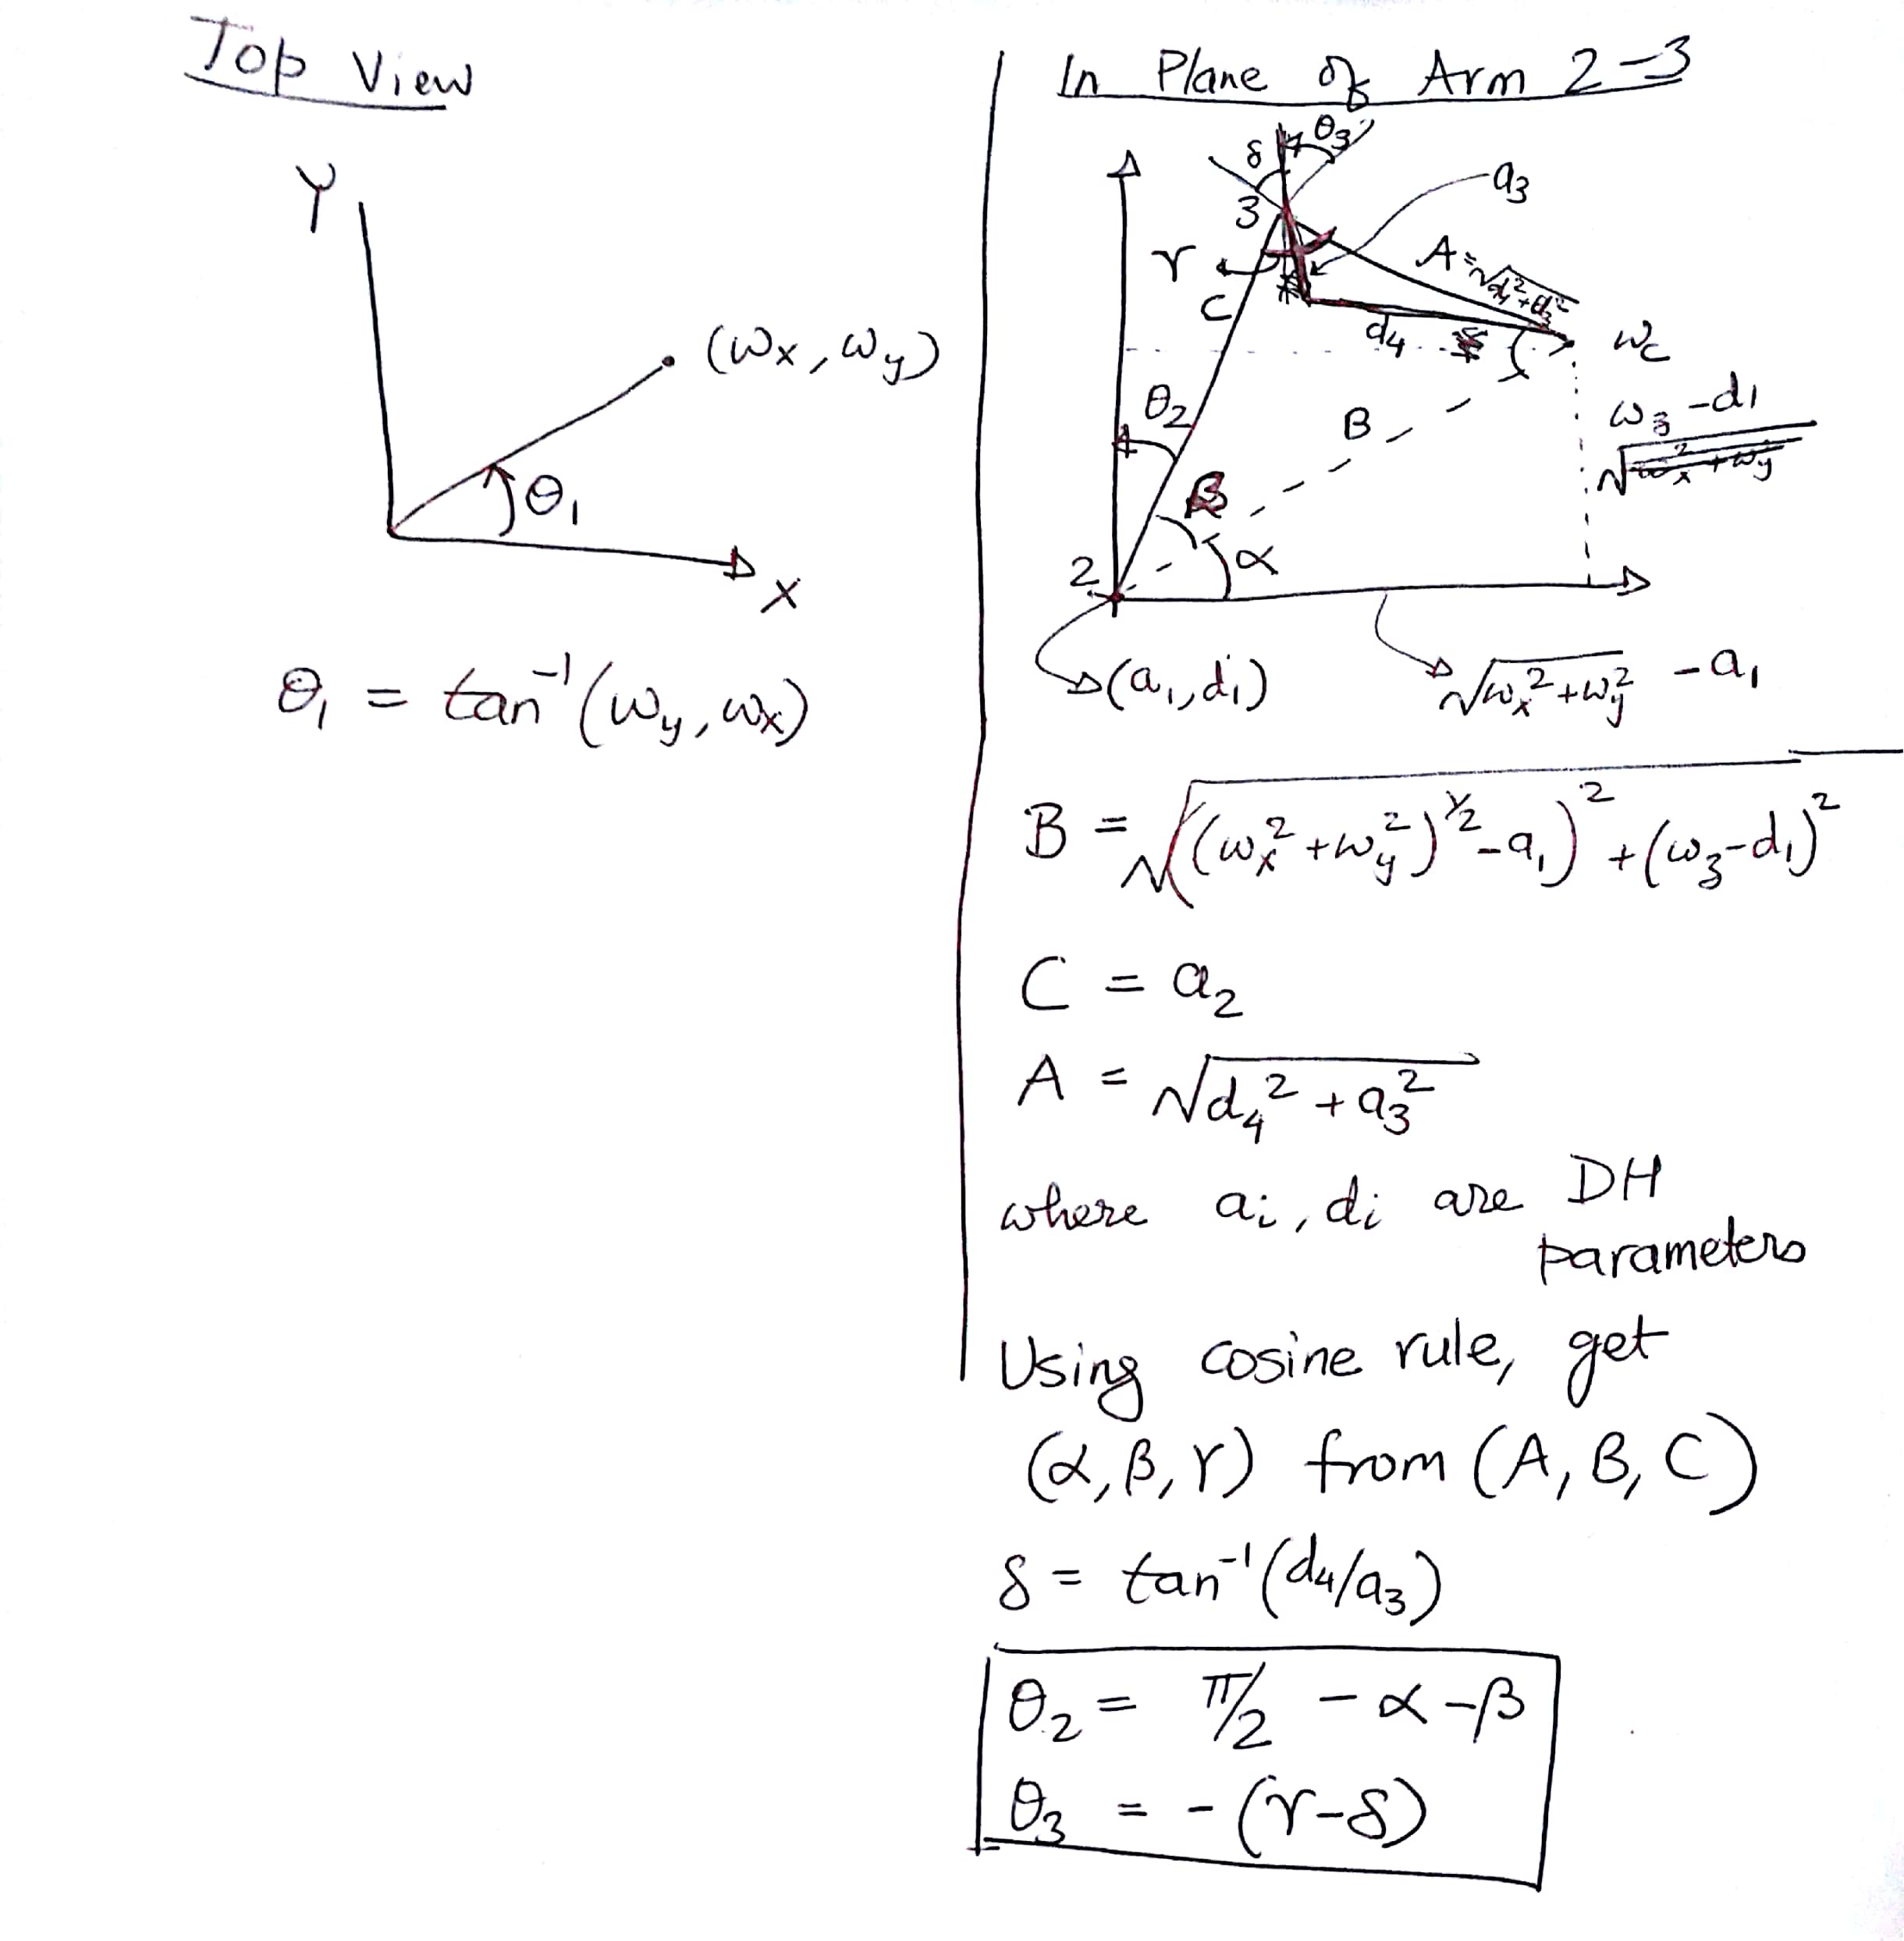 Top View
Y
(ωx, ωy)
θ1
X
θ1 = tan⁻¹(ωy, ωx)
In Plane of Arm 2-3
δ θ3
a3
3
γ
A = √d4²+a3²
C
d4
ωc
θ2
B
ω3 - d1
β
α
2
(a1, d1)
√ωx²+ωy² - a1
B = √((ωx²+ωy²)^½ - a1)² + (ω3-d1)²
C = a2
A = √d4² + a3²
where ai, di are DH
parameters
Using cosine rule, get
(α, β, γ) from (A, B, C)
δ = tan⁻¹(d4/a3)
θ2 = π/2 - α - β
θ3 = - (γ-δ)